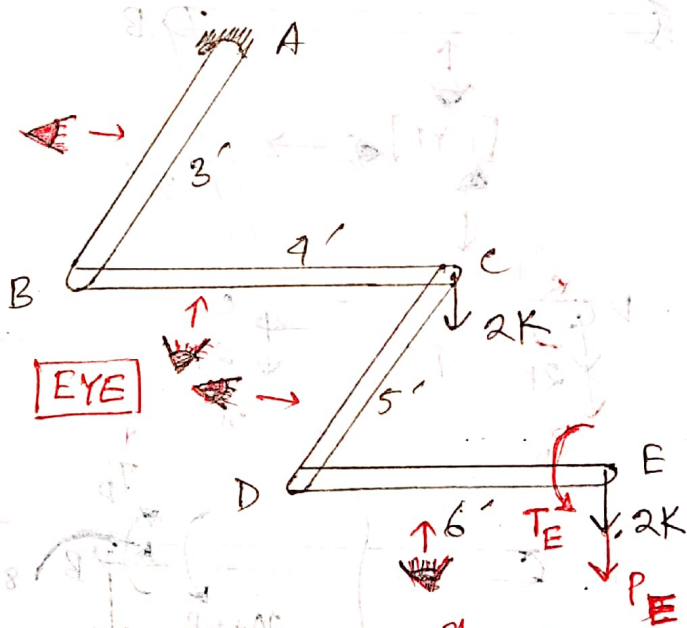 A
3'
4'
B
C
2K
EYE
5'
D
E
6'
T_E
2K
P_E